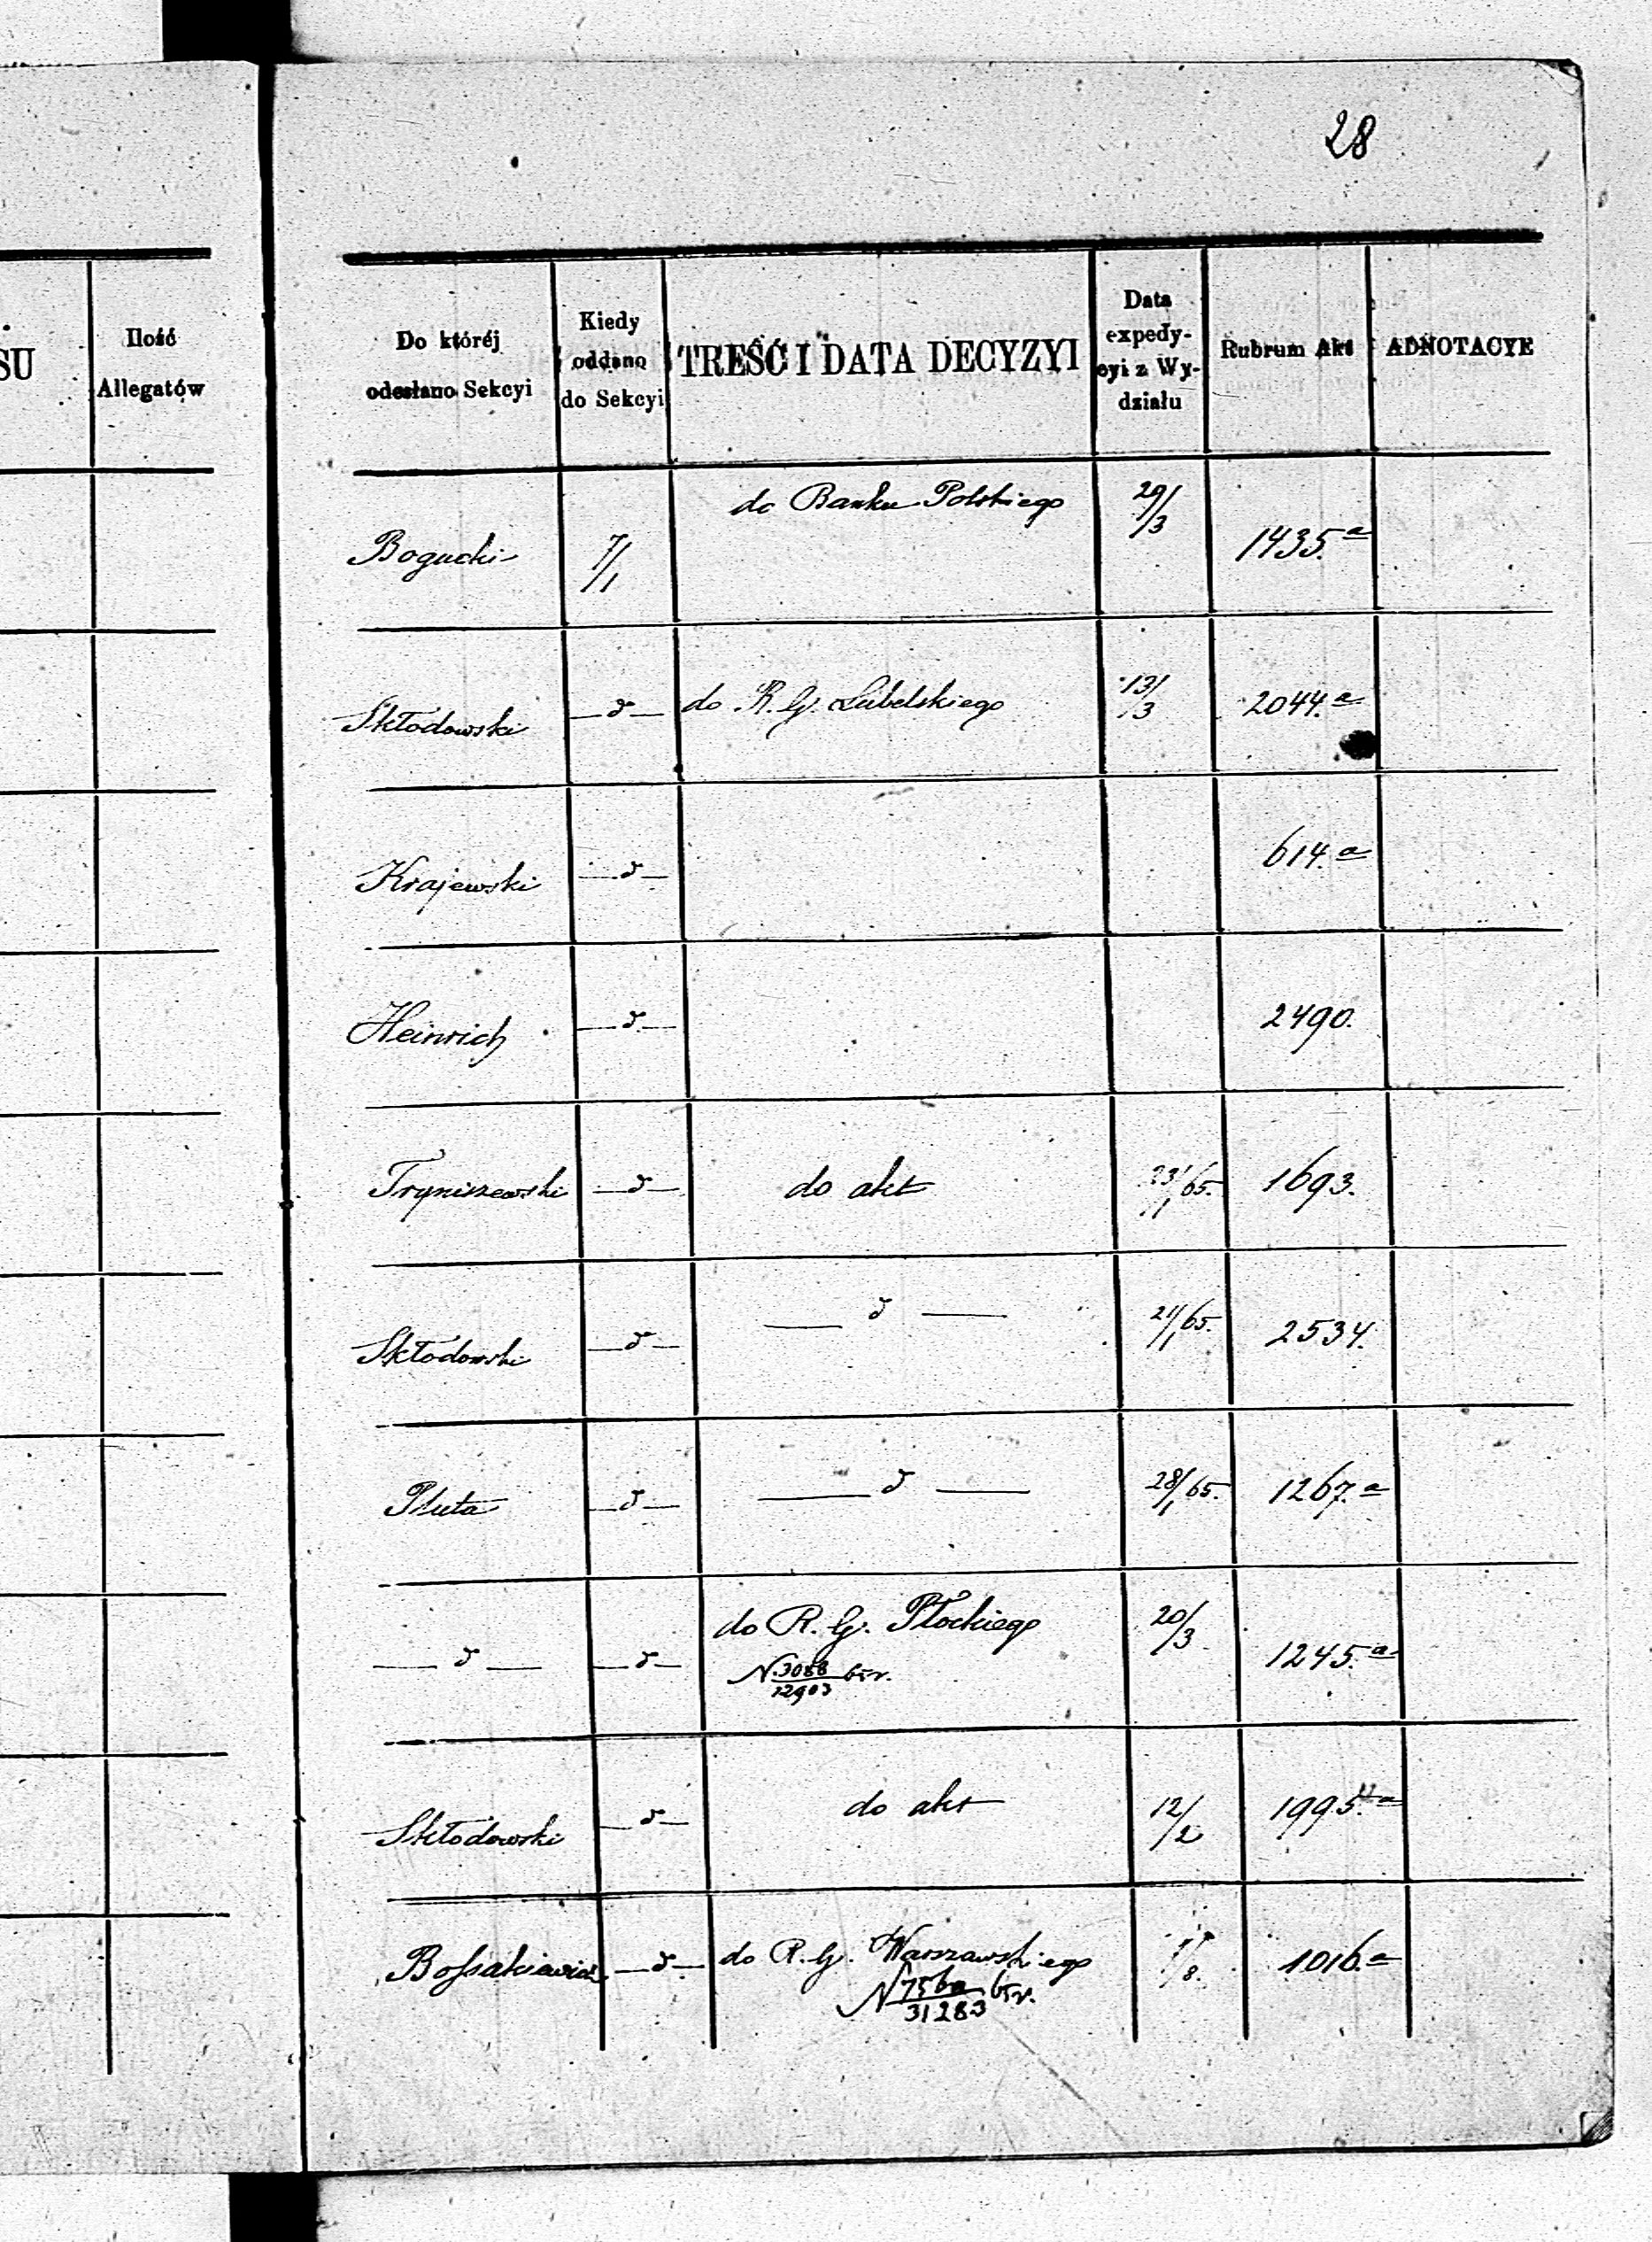 28
SU
Ilość
Allegatów
Do któréj
odesłano Sekcyi
Kiedy
oddano
do Sekcyi
TREŚĆ I DATA DECYZYI
Data
expedy-
cyi z Wy-
działu
Rubrum Akt
ADNOTACYE
Bogucki 7/1 do Banku Polskiego 29/3 1435.a
Skłodowski —d— do R. G. Lubelskiego 13/3 2044.a
Krajewski —d— 614.a
Heinrich —d— 2490.
Tryniszewski —d— do akt 23/1 65. 1693.
Skłodowski —d— — d — 21/1 65. 2534.
Pluta —d— — d — 28/1 65. 1267.a
— d — —d— do R. G. Płockiego 20/3 1245.a
N. 3088/12903
Skłodowski —d— do akt 12/2 1995.a
Bossakiewicz —d— do R. G. Warszawskiego /8. 1016.a
N /31283